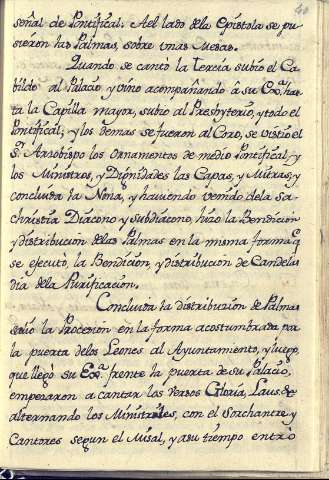 40
señal de Pontifical: Ael lado dela Epistola se pu-
sieron las Palmas, sobre unas Mesas.
Quando se cantò la Tercia subio el Ca-
bildo al Palacio y vino acompañando â su Exª. has-
ta la Capilla mayor, subio al Presbyterio, y todo el
Pontifical; y los demas se fueron al Coro, se vistio el
Sr. Arzobispo los ornamentos de medio Pontifical, y
los Ministros, y Dignidades las Capas, y Mitras; y
concluida la Nona, y haviendo venido dela Sa-
christia Diacono y Subdiacono, hizo la Bendicion
y distribucion delas Palmas en la misma forma q.
se executò, la Bendicion, y distribucion de Candelas
dia dela Purificacion.
Concluida la distribuzion de Palmas
saliò la Procesion en la forma acostumbrada por
la puerta delos Leones al Ayuntamiento, y luego,
que llegò su Exª. frente la puerta de su Palacio,
empezaron a cantar los versos Gloria, Laus &
alternando los Ministriles, con el Sorchantre y
Cantores segun el Misal, y a su tiempo entrò